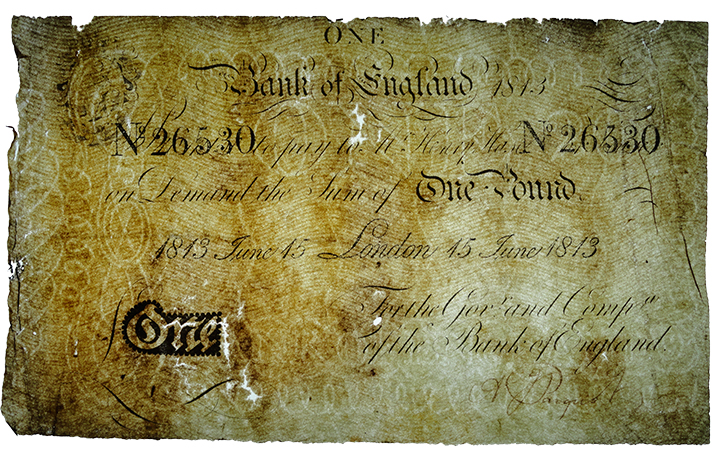 ONE
Bank of England 1813
Nº 26530 to pay to Mr. Henry Nº 26530
on Demand the Sum of One Pound
1813 June 15 London 15 June 1813
For the Govr. and Compa.
of the Bank of England.
One